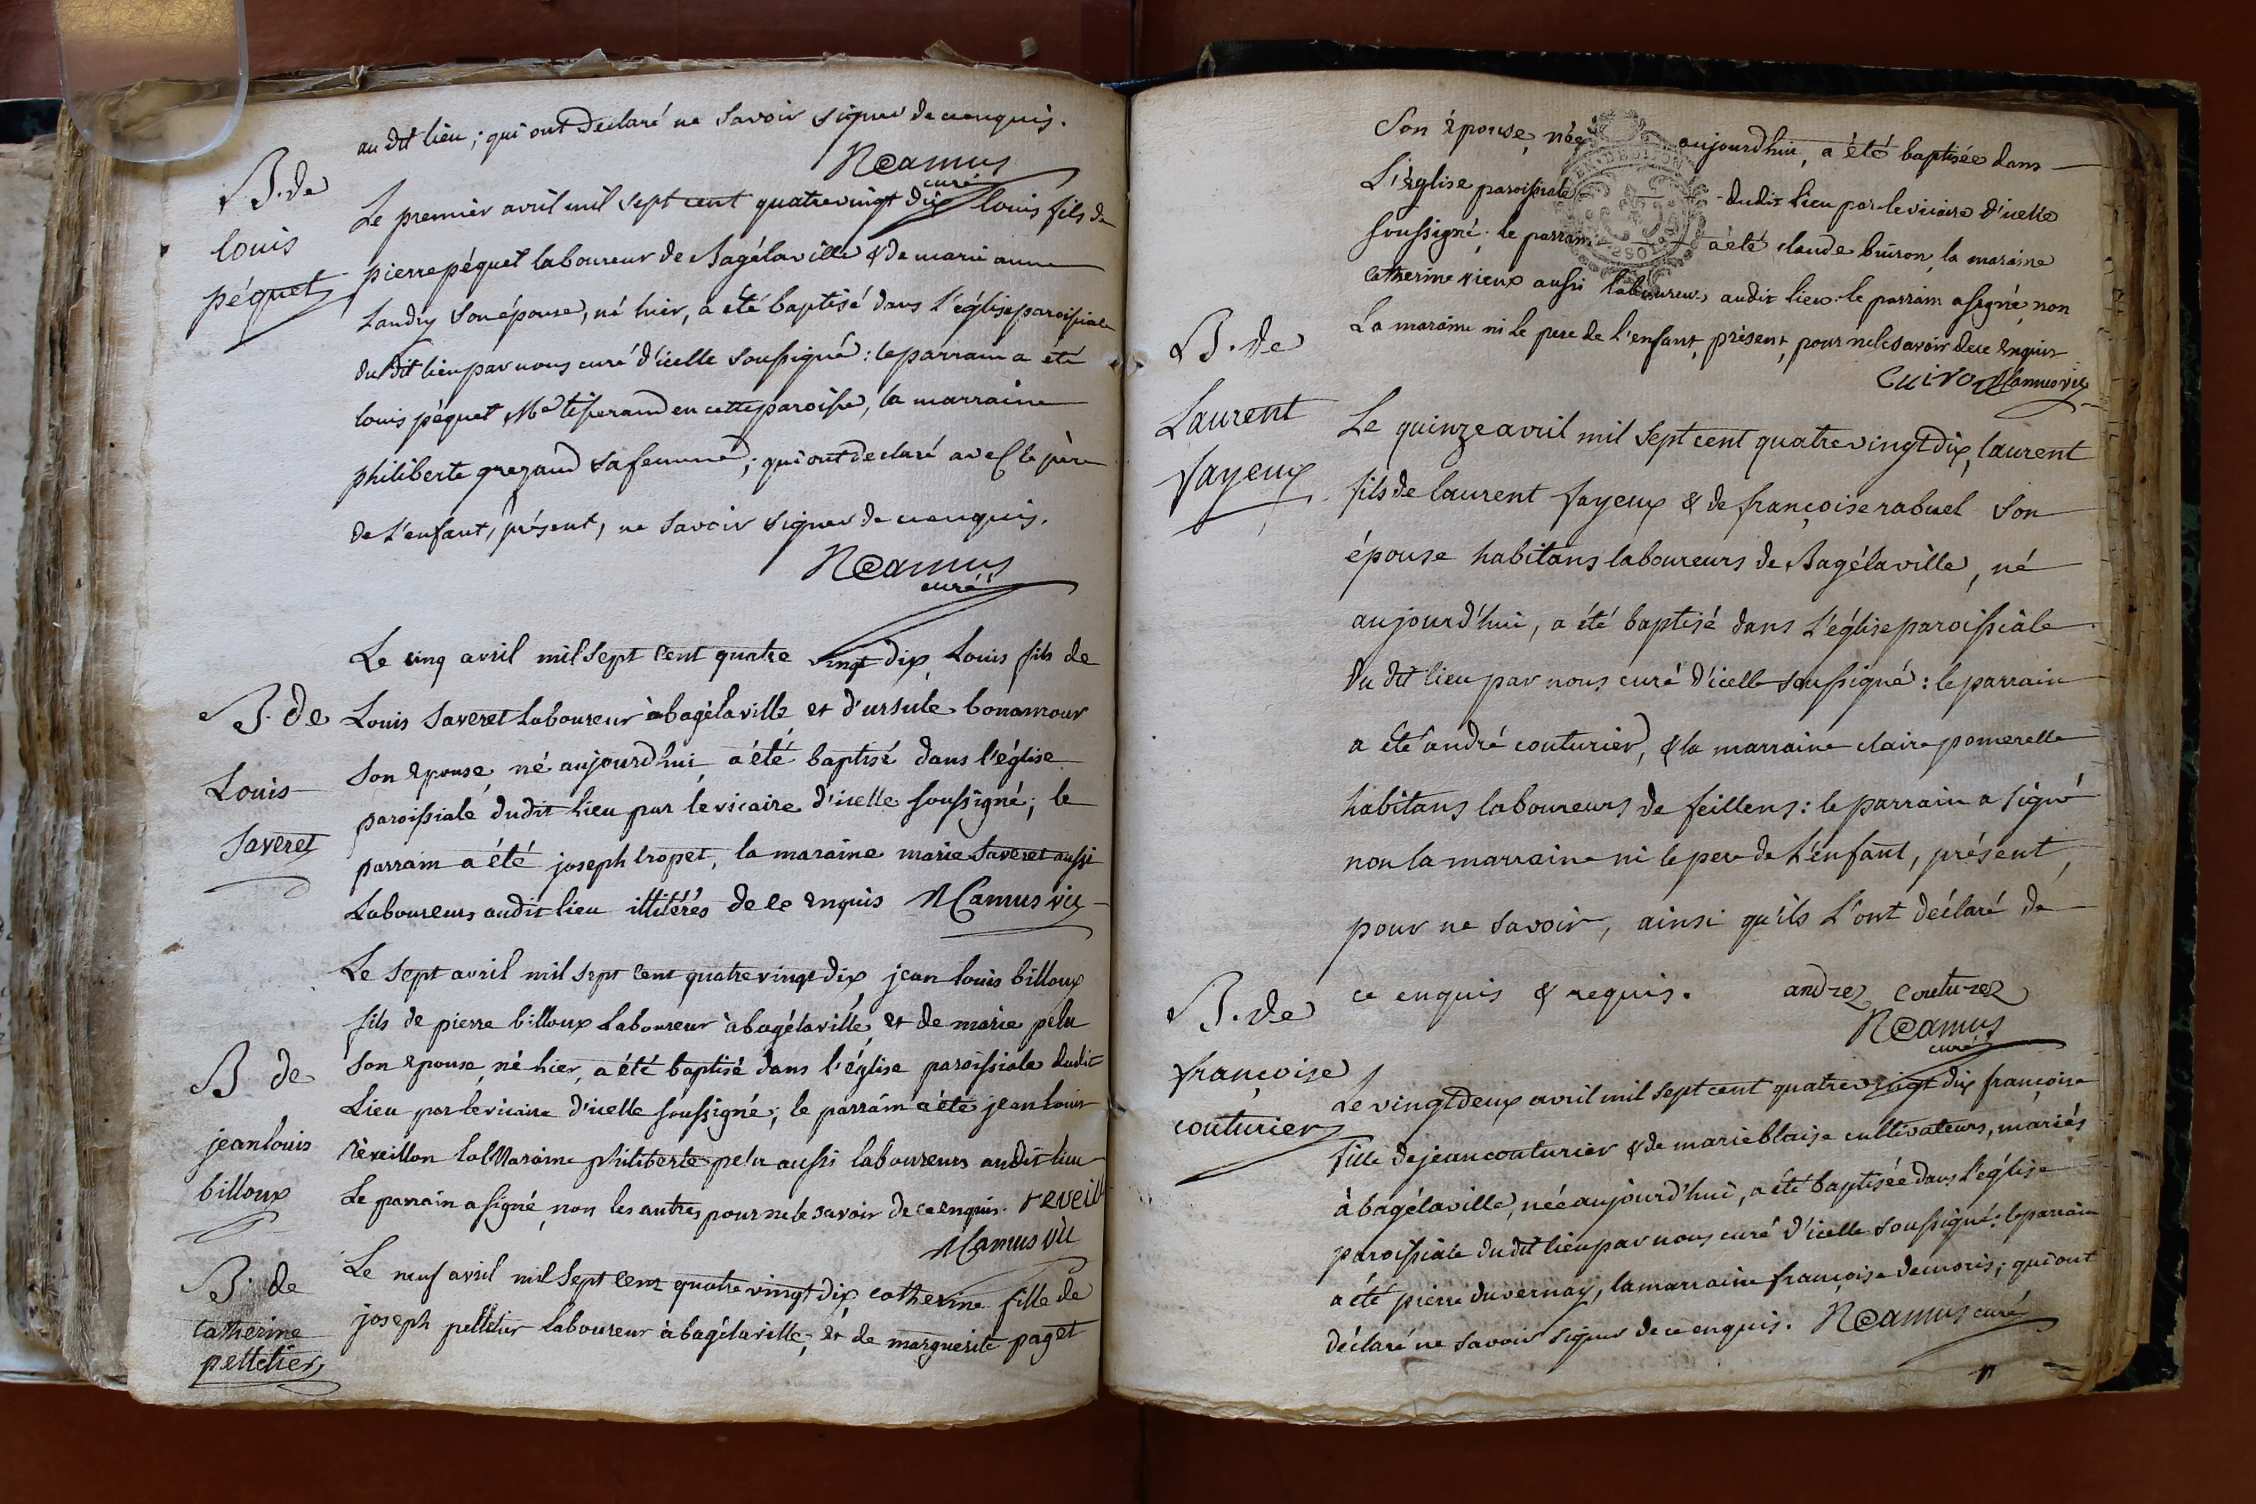 au dit lieu ; qui ont declaré ne savoir signer de ce enquis.
N Camus
curé
B. de
louis
péquet
Le premier avril mil sept cent quatre vingt dix louis fils de
pierre péquet laboureur de Bagélaville & de marie anne
Landry son épouse, né hier, a été baptisé dans l'église paroissiale
du dit lieu par nous curé d'icelle soussigné : le parrain a été
louis péquet Md tisserand en cette paroisse, la marraine
philiberte grezaud sa femme ; qui ont declaré avec le père
de l'enfant, présent, ne savoir signer de ce enquis.
N Camus
curé
B. de
Louis
Saveret
Le cinq avril mil sept cent quatre vingt dix Louis fils de
Louis Saveret Laboureur à bagélaville et d'ursule bonamour
son épouse, né aujourd'hui a été baptisé dans l'église
paroissiale dudit lieu par le vicaire d'icelle soussigné ; le
parrain a été joseph tropet, la maraine marie Saveret aussi
Laboureurs audit lieu illitérés de ce enquis N Camus vic
B de
jean louis
billoux
Le sept avril mil sept cent quatre vingt dix jean louis billoux
fils de pierre billoux Laboureur à bagélaville, et de marie pelu
son épouse, né hier, a été baptisé dans l'église paroissiale dudit
Lieu par le vicaire d'icelle soussigné ; le parrain a été jean louis
réveillon la Maraine philiberte pelu aussi laboureurs audit lieu
Le parrain a signé, non les autres pour ne le savoir de ce enquis. reveill
N Camus vic
B. de
Catherine
pelletier
Le neuf avril mil sept cent quatre vingt dix catherine fille de
joseph pelletier laboureur à bagélaville, et de marguerite paget
Son épouse, née aujourd'hui, a été baptisée dans
L'église paroissiale dudit lieu par le vicaire d'icelle
soussigné ; le parrain a été claude buiron, la maraine
catherine vieux aussi laboureurs audit lieu. le parrain a signé, non
La maraine ni le pere de l'enfant, présent, pour ne le savoir de ce enquis
Cuiron N Camus vic
B. de
Laurent
fayeux
Le quinze avril mil sept cent quatre vingt dix, laurent
fils de laurent fayeux & de françoise rabuel son
épouse habitans laboureurs de Bagélaville, né
aujourd'hui, a été baptisé dans l'église paroissiale
du dit lieu par nous curé d'icelle soussigné : le parrain
a été andré couturier, & la marraine claire pomerelle
habitans laboureurs de feillens : le parrain a signé
non la marraine ni le pere de l'enfant, présent,
pour ne savoir, ainsi qu'ils l'ont déclaré de
ce enquis & requis. andrez couturez
N Camus
curé
B. de
françoise
couturier
Le vingt deux avril mil sept cent quatre vingt dix françoise
fille de jean couturier & de marie blaise cultivateurs, mariés
à bagélaville, née aujourd'hui, a été baptisée dans l'église
paroissiale du dit lieu par nous curé d'icelle soussigné : le parrain
a été pierre duvernay, la marraine françoise demoris ; qui ont
déclaré ne savoir signer de ce enquis. N Camus curé